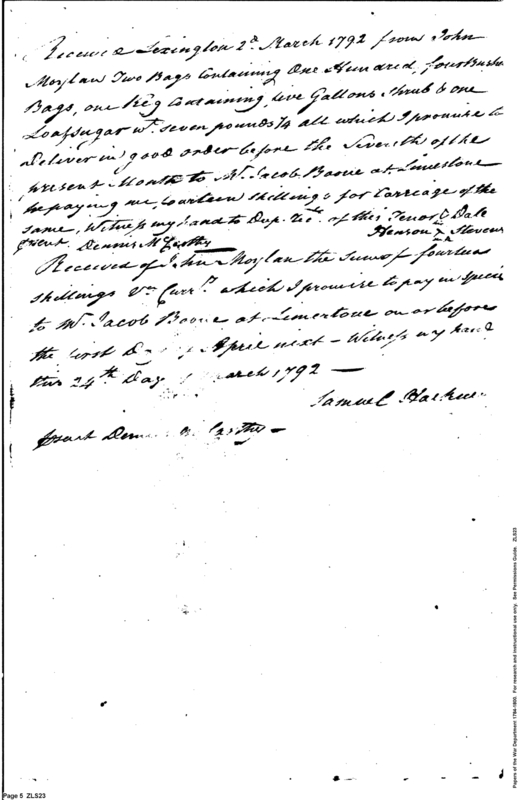 Received Lexington 2d. March 1792 from John
Moylan Two Bags Containing One Hundred, four Bushl
Bags, one Keg Containing five Gallons Shrub & one
Loaf Sugar wt. seven pounds 1/4 all which I promise to
Deliver in good order before the Seventh of the
present Month to Mr. Jacob Boone at Limestone
he paying me, fourteen shillings for Carriage of the
same, Witness my hand to Dup. of this Tenor & Date
Dennis McCarthy Henson X Stevens
Received of John Moylan the Sum of fourteen
shillings Va. Curry. which I promise to pay in Specie
to Mr. Jacob Boone at Limestone on or before
the first Day of April next - Witness my hand
this 24th Day March 1792 —
Samuel
Dennis McCarthy —
Page 5 ZLS23
Papers of the War Department 1784-1800. For research and instructional use only. See Permissions Guide. ZLS23